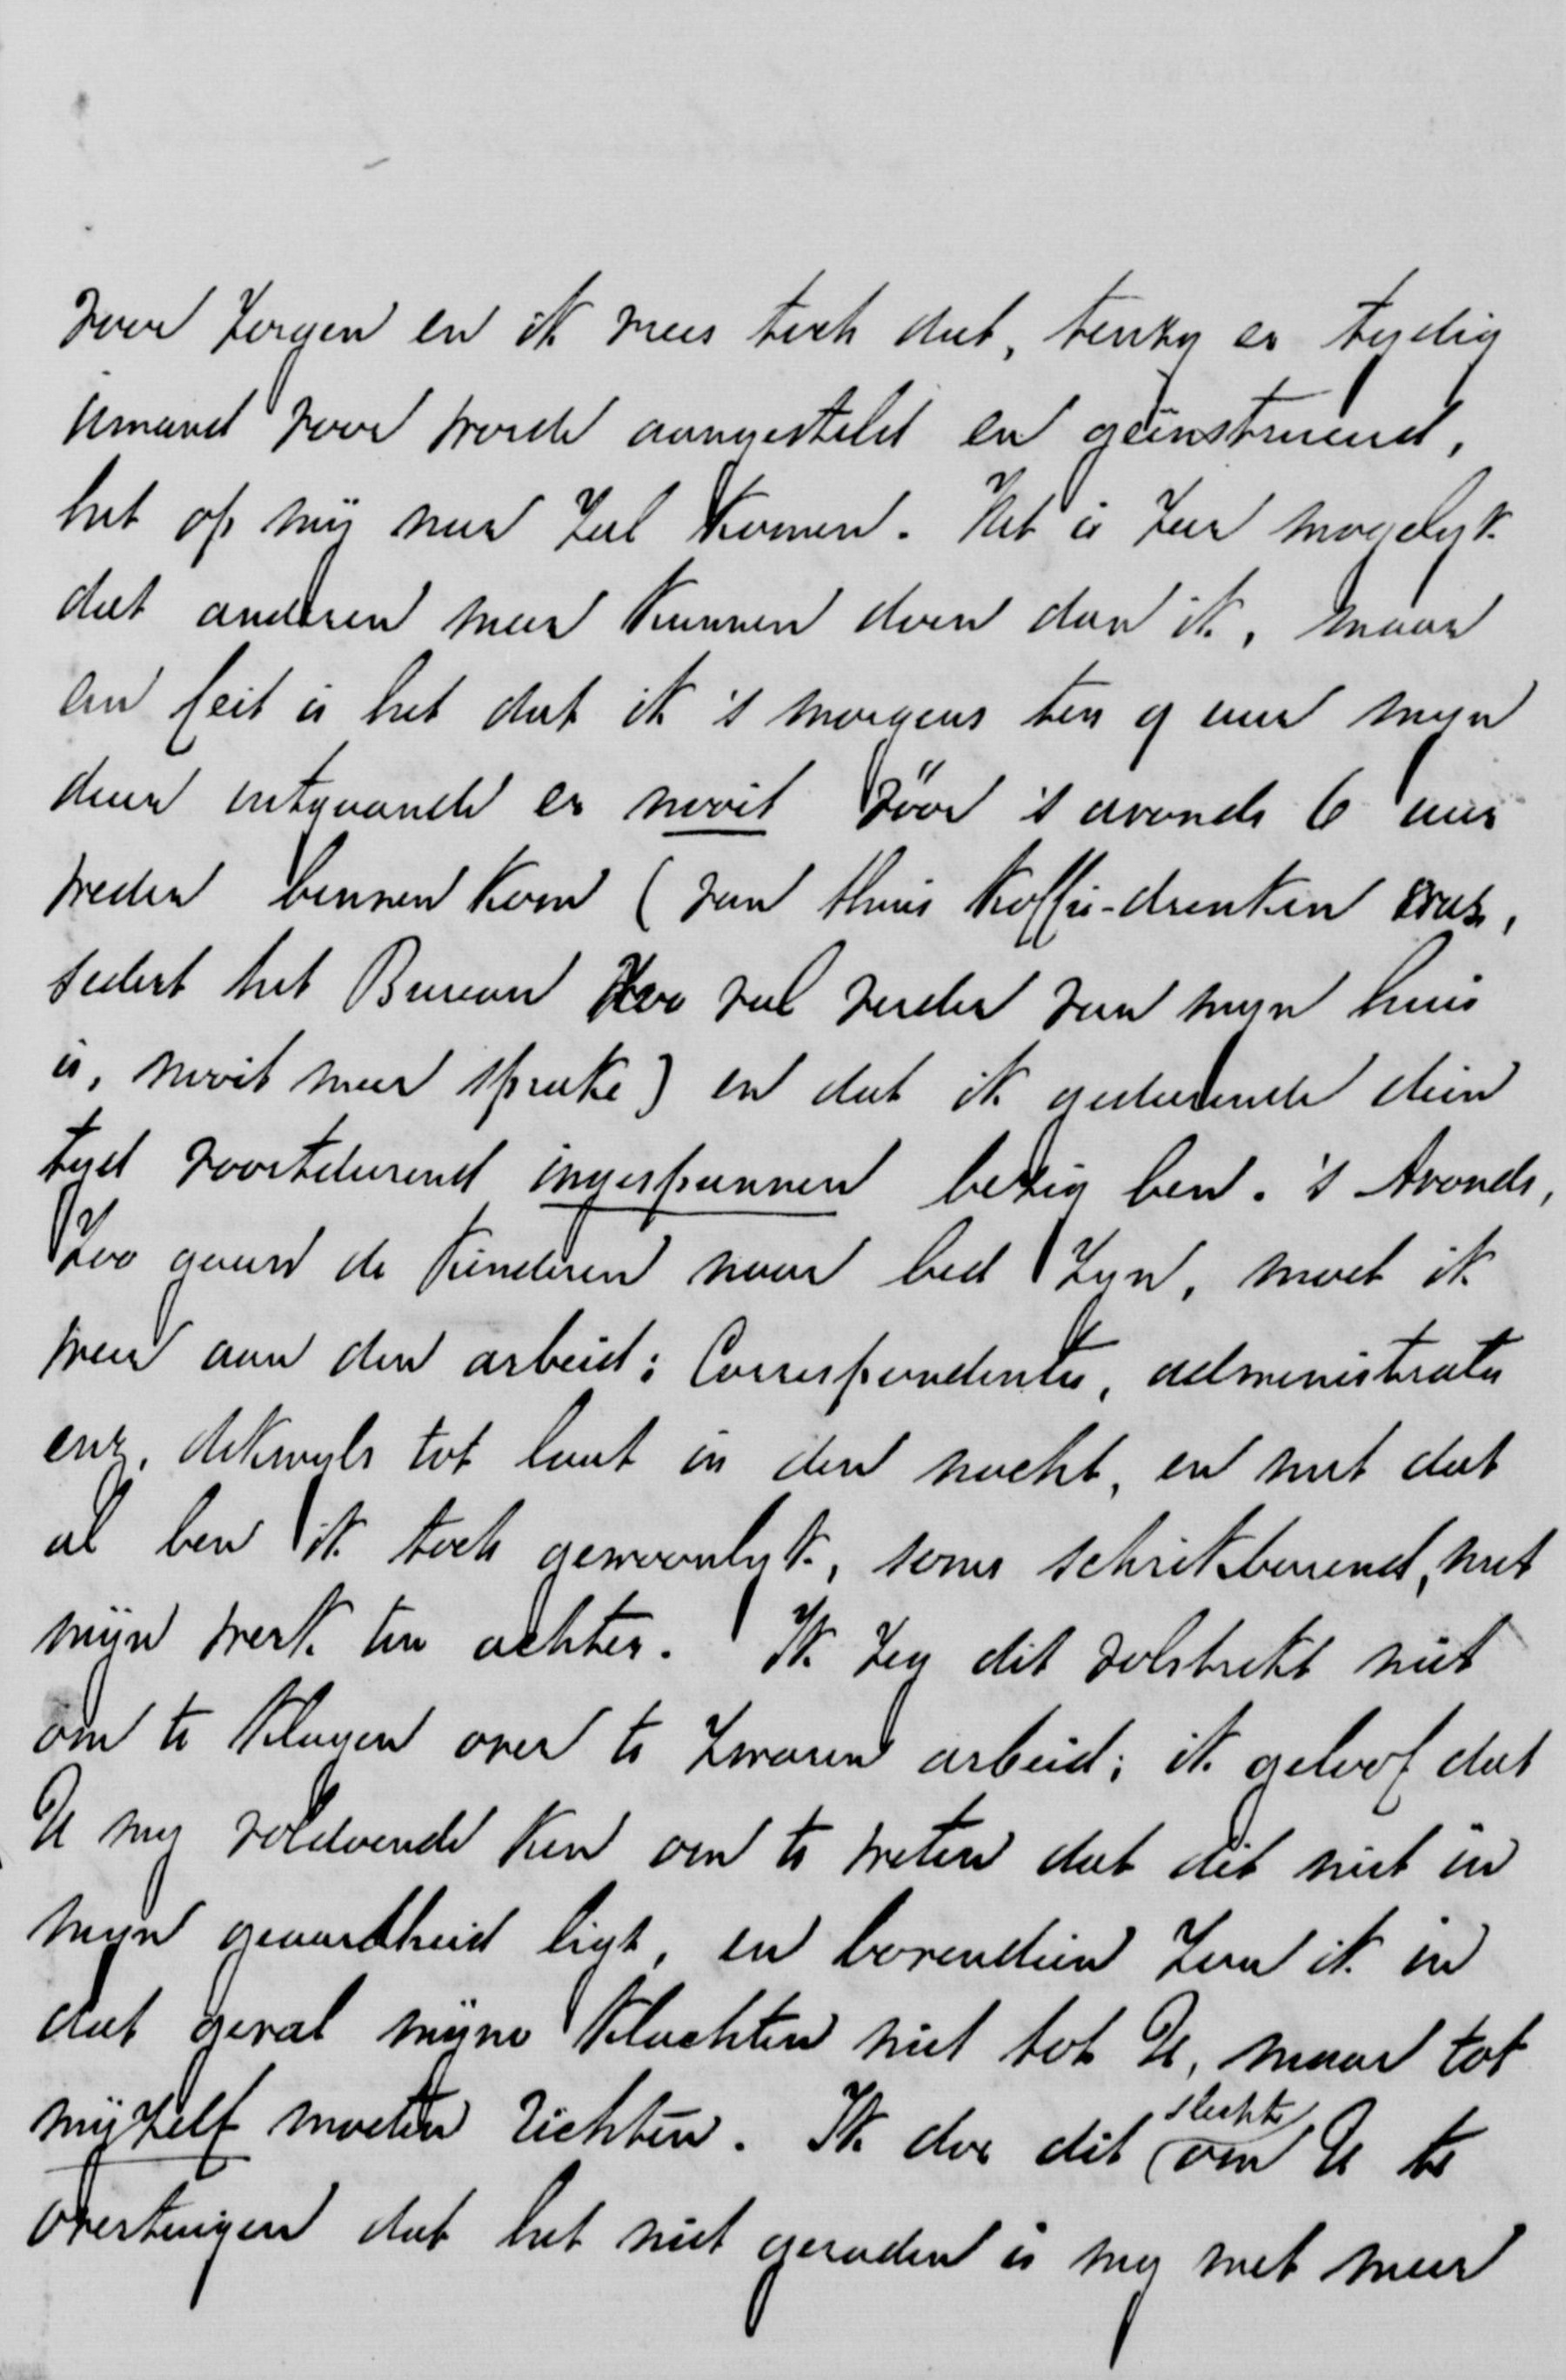 voor zorgen en ik vrees toch dat, tenzy er tydig
iemand voor worde aangesteld en geïnstrueerd,
het op mij neer zal komen. Het is zeer mogelyk
dat anderen meer kunnen doen dan ik, maar
een feit is het dat ik 's morgens ten 9 uur myn
deur uitgaande er nooit vóór 's avonds 6 uur
weder binnen kom (van thuis koffie-drinken was,
sedert het Bureau zoo veel verder van myn huis
is, nooit meer sprake) en dat ik gedurende dien
tyd voortdurend ingespannen bezig ben. 's Avonds,
zoo gauw de kinderen naar bed zyn, moet ik
weer aan den arbeid: Correspondentie, administratie
enz. dikwyls tot laat in den nacht, en met dat
al ben ik toch gewoonlyk, soms schrikbarend, met
mijn werk ten achter. Ik zeg dit volstrekt niet
om te klagen over te zwaren arbeid; ik geloof dat
U my voldoende ken om te weten dat dit niet in
myn geaardheid ligt, en bovendien zou ik in
dat geval mijne klachten niet tot U, maar tot
mijzelf moeten richten. Ik doe dit slechts om U te
overtuigen dat het niet geraden is my met meer